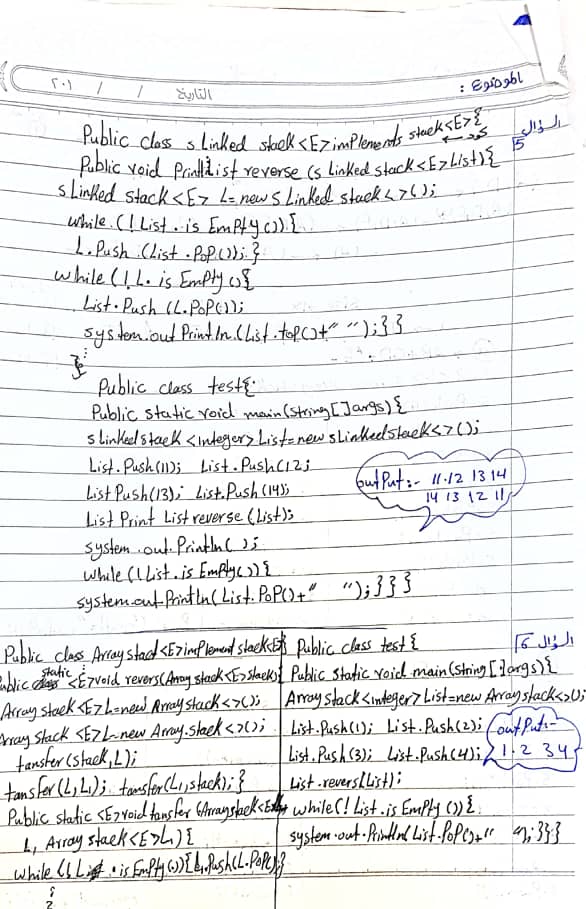 الموضوع :
التاريخ / / ٢٠١
السؤال 5
Public class sLinked stack<E>implements stack<E>{
كود
Public void PrintList reverse (sLinked stack<E>List){
sLinked stack<E> L=new sLinked stack<>();
while.(!List.is Empty()){
L.Push.(List.PoP());}
while(!L.is Empty(){
List.Push (L.PoP());
system.out Println.(List.top()+" ");}}
}
Public class test{
Public static void main(string[]args){
sLinkedstack<integer>List=new sLinkedstack<>();
List.Push(11); List.Push(12;
List Push(13); List.Push(14);
outPut:- 11.12 13 14
14 13 12 11
List Print List reverse (List);
system.out.Println( );
while(!List.is Empty()){
system.out.Println(List.PoP()+" ");}}}
Public class Array stack<E>implement stack<E>{
static
ublic <E>void revers(Array stack<E>stack){
Array stack<E>L=new Array stack<>();
Array stack<E>L=new Array.stack<>();
tansfer(stack,L);
tansfer(L,L1); tansfer(L1,stack);}
Public static<E>void tansfer(Array stack<E>
L, Array stack<E>L1){
while(!List.is Empty()){L1.Push(L.PoP();}
السؤال 6
Public class test{
Public static void main(string[]args){
Array stack<integer>List=new Array stack<>();
List.Push(1); List.Push(2);
List.Push(3); List.Push(4);
outPut:-
1.2 3 4
List.revers(List);
while(!List.is Empty()){
system.out.Println(List.PoP()+" ");}}}